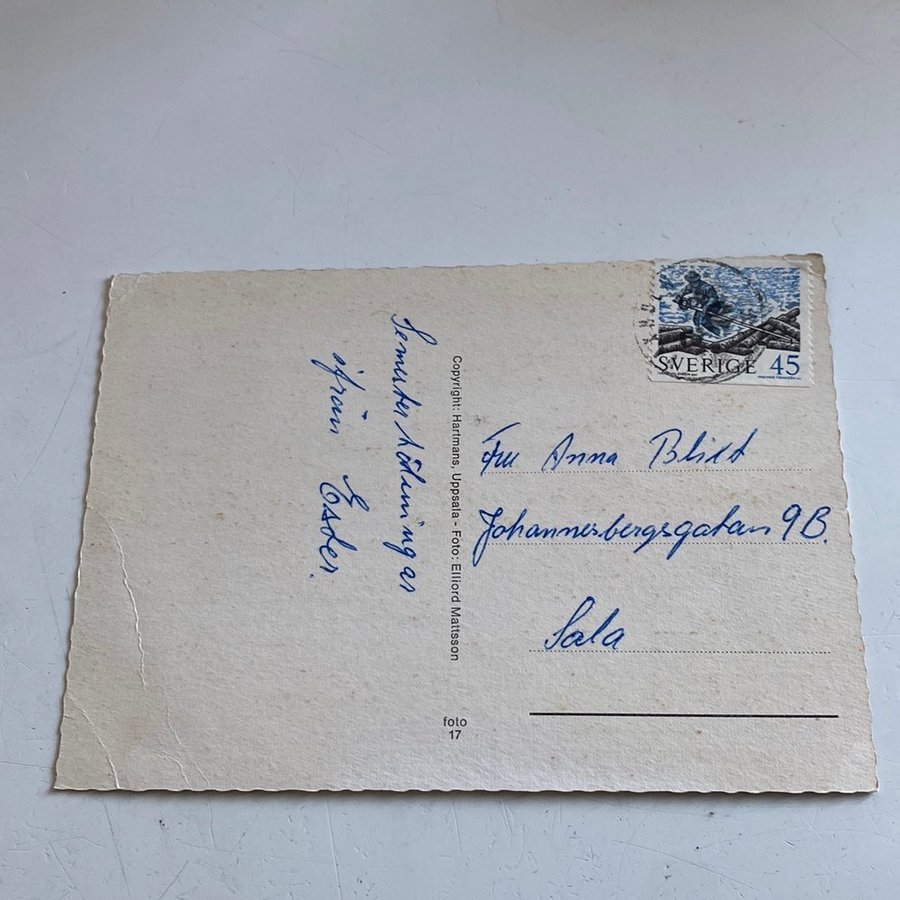 Semesterhälsningar
ifrån Ester.
Copyright: Hartmans, Uppsala - Foto: Elliord Mattsson
foto
17
SVERIGE 45
Fru Anna Blixt
Johannesbergsgatan 9B.
Sala